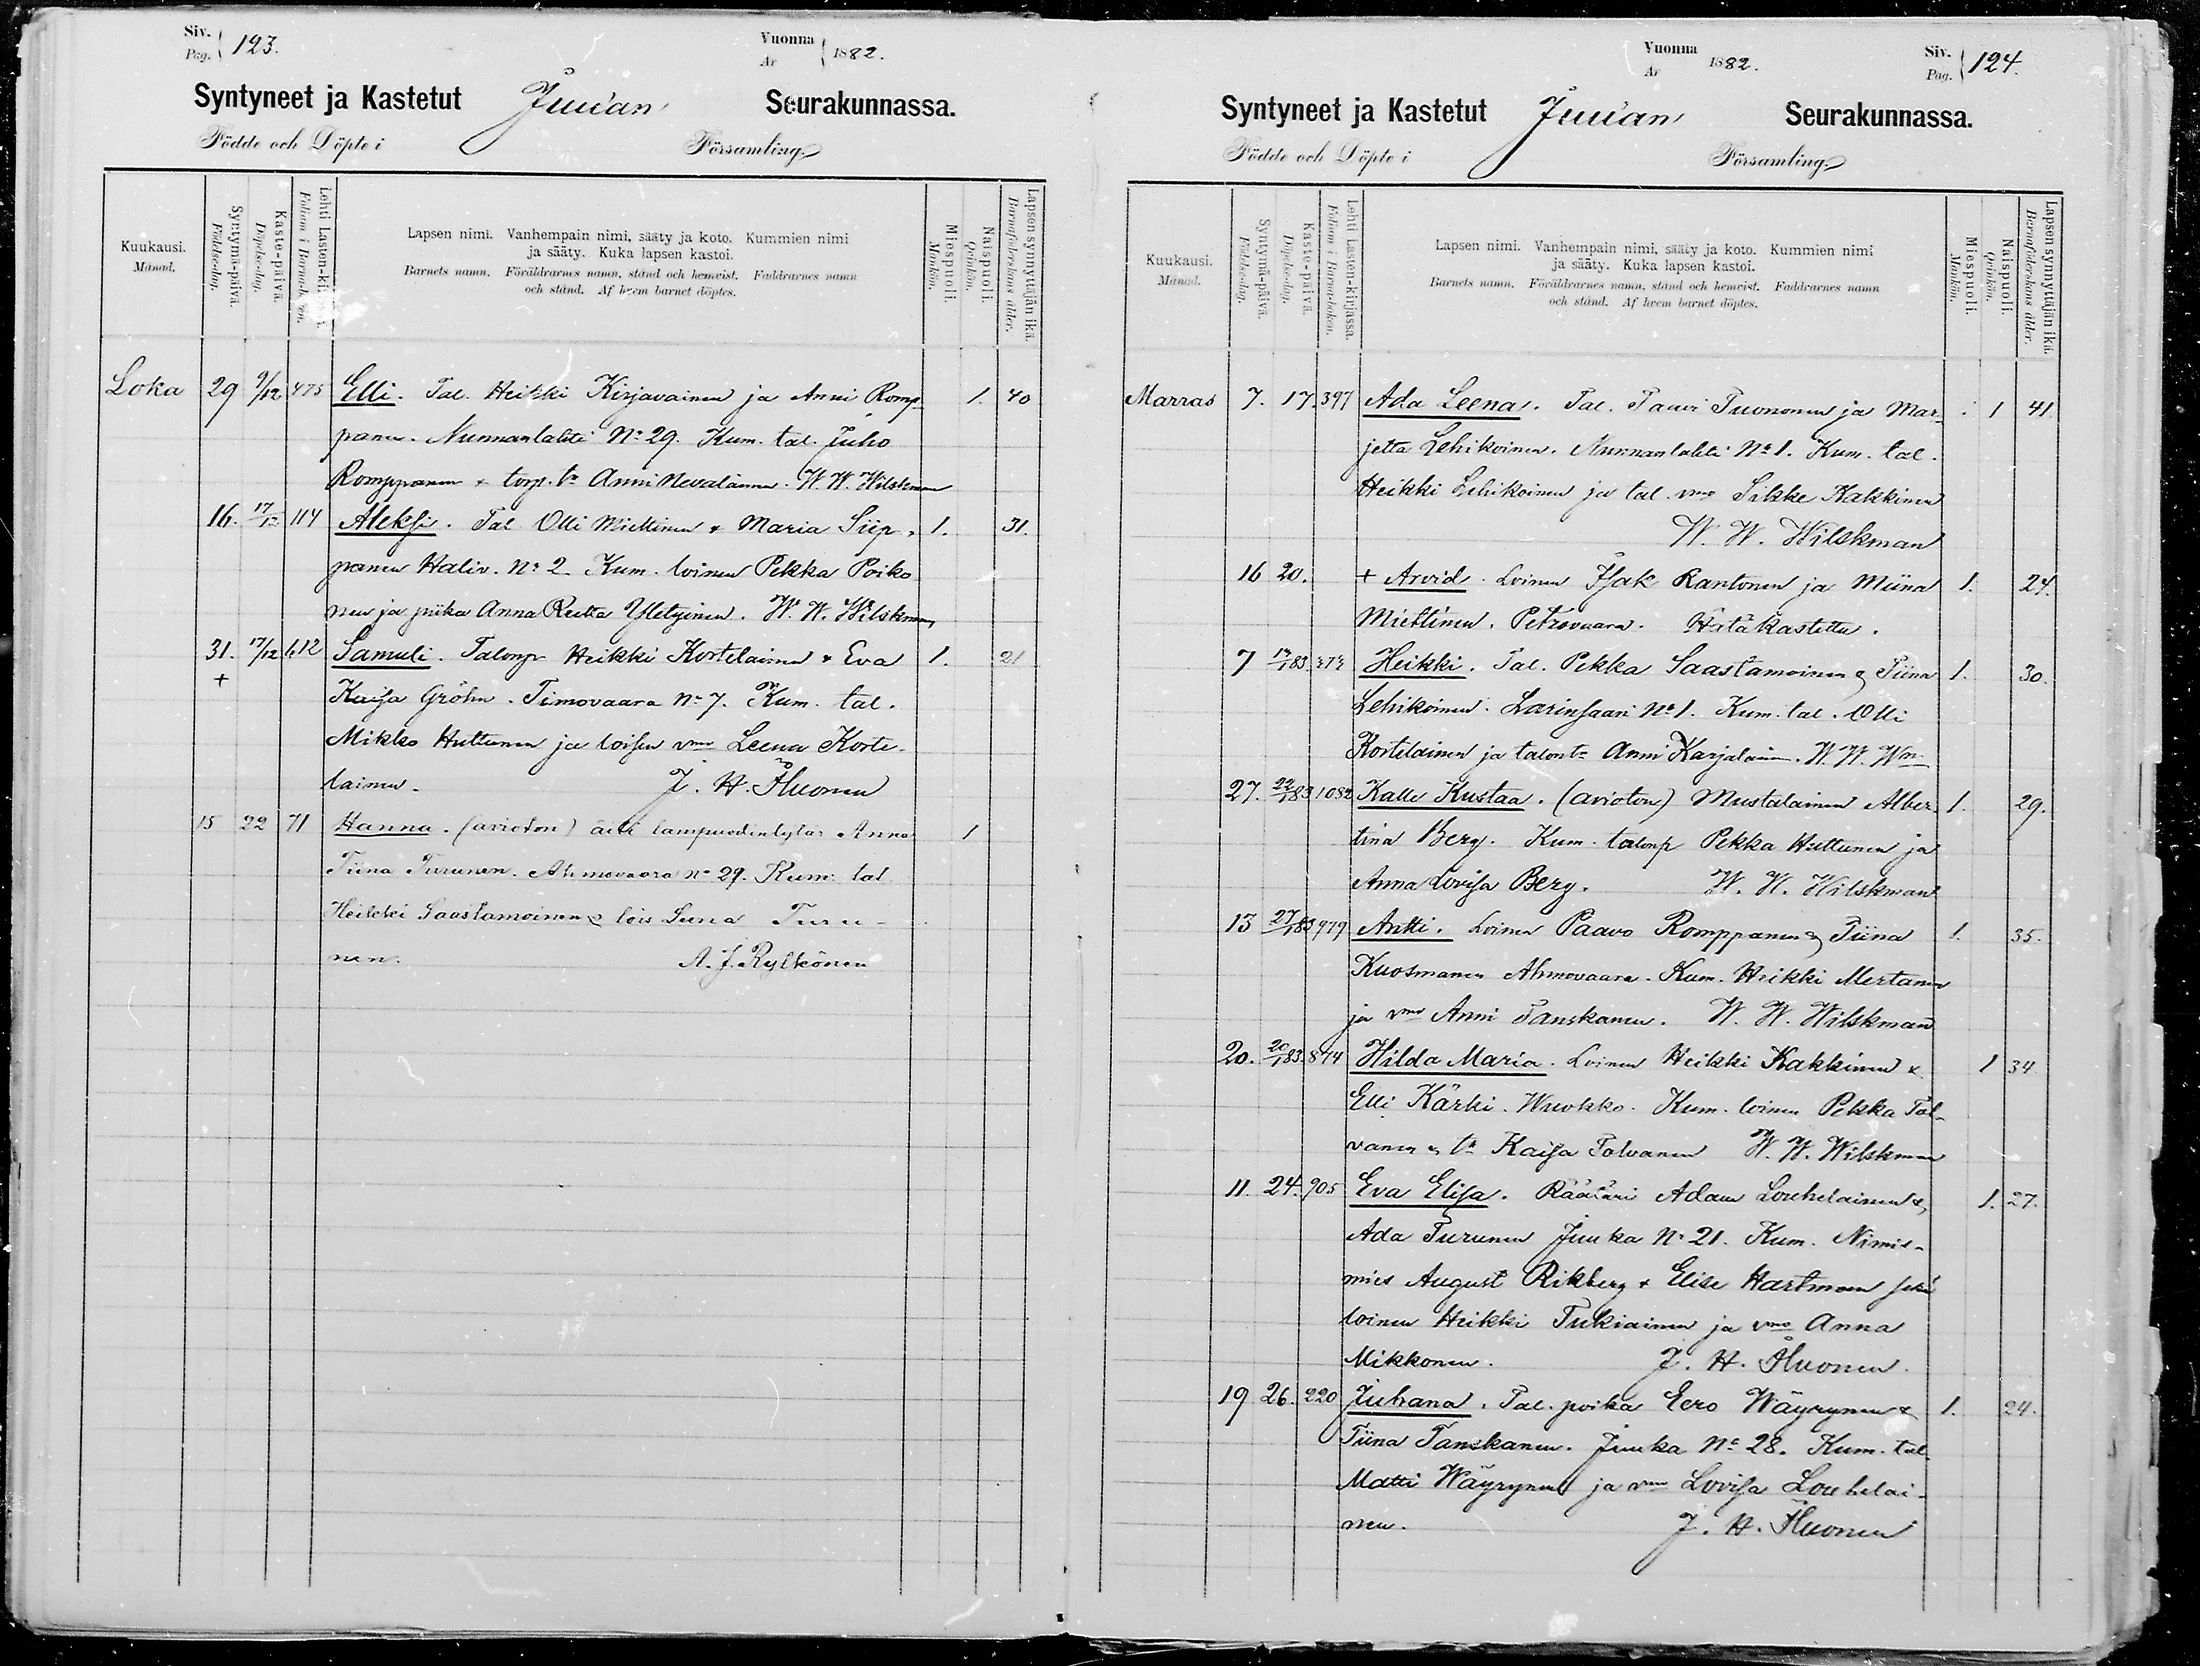 Siv. Pag. 123.
Vuonna År 1882.
Syntyneet ja Kastetut Juuan Seurakunnassa.
Födde och Döpte i Församling.
Kuukausi. Månad.
Syntymä-päivä. Födelse-dag.
Kaste-päivä. Döpelse-dag.
Lehti Lasten-ki
Folium i Barna-b en.
Lapsen nimi. Vanhempain nimi, sääty ja koto. Kummien nimi
ja sääty. Kuka lapsen kastoi.
Barnets namn. Föräldrarnes namn, stånd och hemvist. Faddrarnes namn
och stånd. Af hvem barnet döptes.
Miespuoli. Mankön.
Naispuoli. Qvinkön.
Lapsen synnyttäjän ikä. Barnaföderskans ålder.
Loka 29 9/12 475 Elli. Tal. Heikki Kirjavainen ja Anni Romp- 1. 40
panen. Nunnanlahti No 29. Kum. tal. Juho
Romppanen & torp. tr Anni Nevalainen. W. W. Wilskman
16. 17/12 114 Aleksi. Tal Olli Miettinen & Maria Siip- 1. 31.
panen Haliv. No 2. Kum. loinen Pekka Poiko
nen ja piika Anna Reetta Yletyinen. W. W. Wilskman
31. 17/12 612 Samuli. Talonp Heikki Kortelainen & Eva 1. 21
+ Kaisa Gröhn. Timovaara No 7. Kum. tal.
Mikko Huttunen ja loisen vmo Leena Korte-
lainen. J. H. Åhuonen
15 22 71 Hanna. (avioton) äiti lampuodintytär Anna 1
Tiina Turunen. Ahmovaara no 29. Kum. tal
Heikki Saastamoinen & lois Leena Turu-
nen. A. J. Rytkönen
Vuonna År 1882.
Siv. Pag. 124.
Syntyneet ja Kastetut Juuan Seurakunnassa.
Födde och Döpte i Församling.
Kuukausi. Månad.
Syntymä-päivä. Födelse-dag.
Kaste-päivä. Döpelse-dag.
Lehti Lasten-kirjassa. Folium i Barna-boken.
Lapsen nimi. Vanhempain nimi, sääty ja koto. Kummien nimi
ja sääty. Kuka lapsen kastoi.
Barnets namn. Föräldrarnes namn, stånd och hemvist. Faddrarnes namn
och stånd. Af hvem barnet döptes.
Miespuoli. Mankön.
Naispuoli. Qvinkön.
Lapsen synnyttäjän ikä. Barnaföderskans ålder.
Marras 7. 17. 397 Ada Leena. Tal. Paavi Tuononen ja Mar- 1 41.
jetta Lehikoinen. Nunnanlahti No 1. Kum. tal.
Heikki Lehikoinen ja tal. vmo Sikke Kakkinen
W. W. Wilskman
16 20. + Arvid. Loinen Isak Rantonen ja Miina 1. 24.
Miettinen. Petrovaara. Hätäkastettu.
7 17/1 83. Heikki. Tal. Pekka Saastamoinen & Tiina 1. 30.
Lehikoinen. Larinsaari No 1. Kum. tal. Olli
Kortelainen ja talon tr Anni Karjalainen. W. W. Wm
27. 22/1 83 1082 Kalle Kustaa. (avioton) Mustalainen Alber- 1. 29.
tina Berg. Kum. talonp Pekka Huttunen ja
Anna Lovisa Berg. W. W. Wilskman
13 27/1 83 979 Antti. Loinen Paavo Romppanen & Tiina 1. 35.
Kuosmanen Ahmovaara. Kum. Heikki Mertanen
ja vmo Anni Tanskanen. W. W. Wilskman
20. 20/1 83. 874 Hilda Maria. Loinen Heikki Kakkinen & 1 34
Elli Kärki. Wuokko. Kum. loinen Pekka Tol-
vanen & tr Kaisa Tolvanen W. W. Wilskman
11. 24. 905 Eva Elisa. Räätäri Adam Louhelainen & 1. 27.
Ada Turunen Juuka No 21. Kum. Nimis-
mies August Rikberg & Elise Hartman sekä
loinen Heikki Tukiainen ja vmo Anna
Mikkonen. J. H. Åhuonen.
19 26. 220 Juhana. Tal. poika Eero Wäyrynen & 1. 24.
Tiina Tanskanen. Juuka No 28. Kum. tal.
Matti Wäyrynen ja vmo Lovisa Louhelai-
nen. J. H. Åhuonen